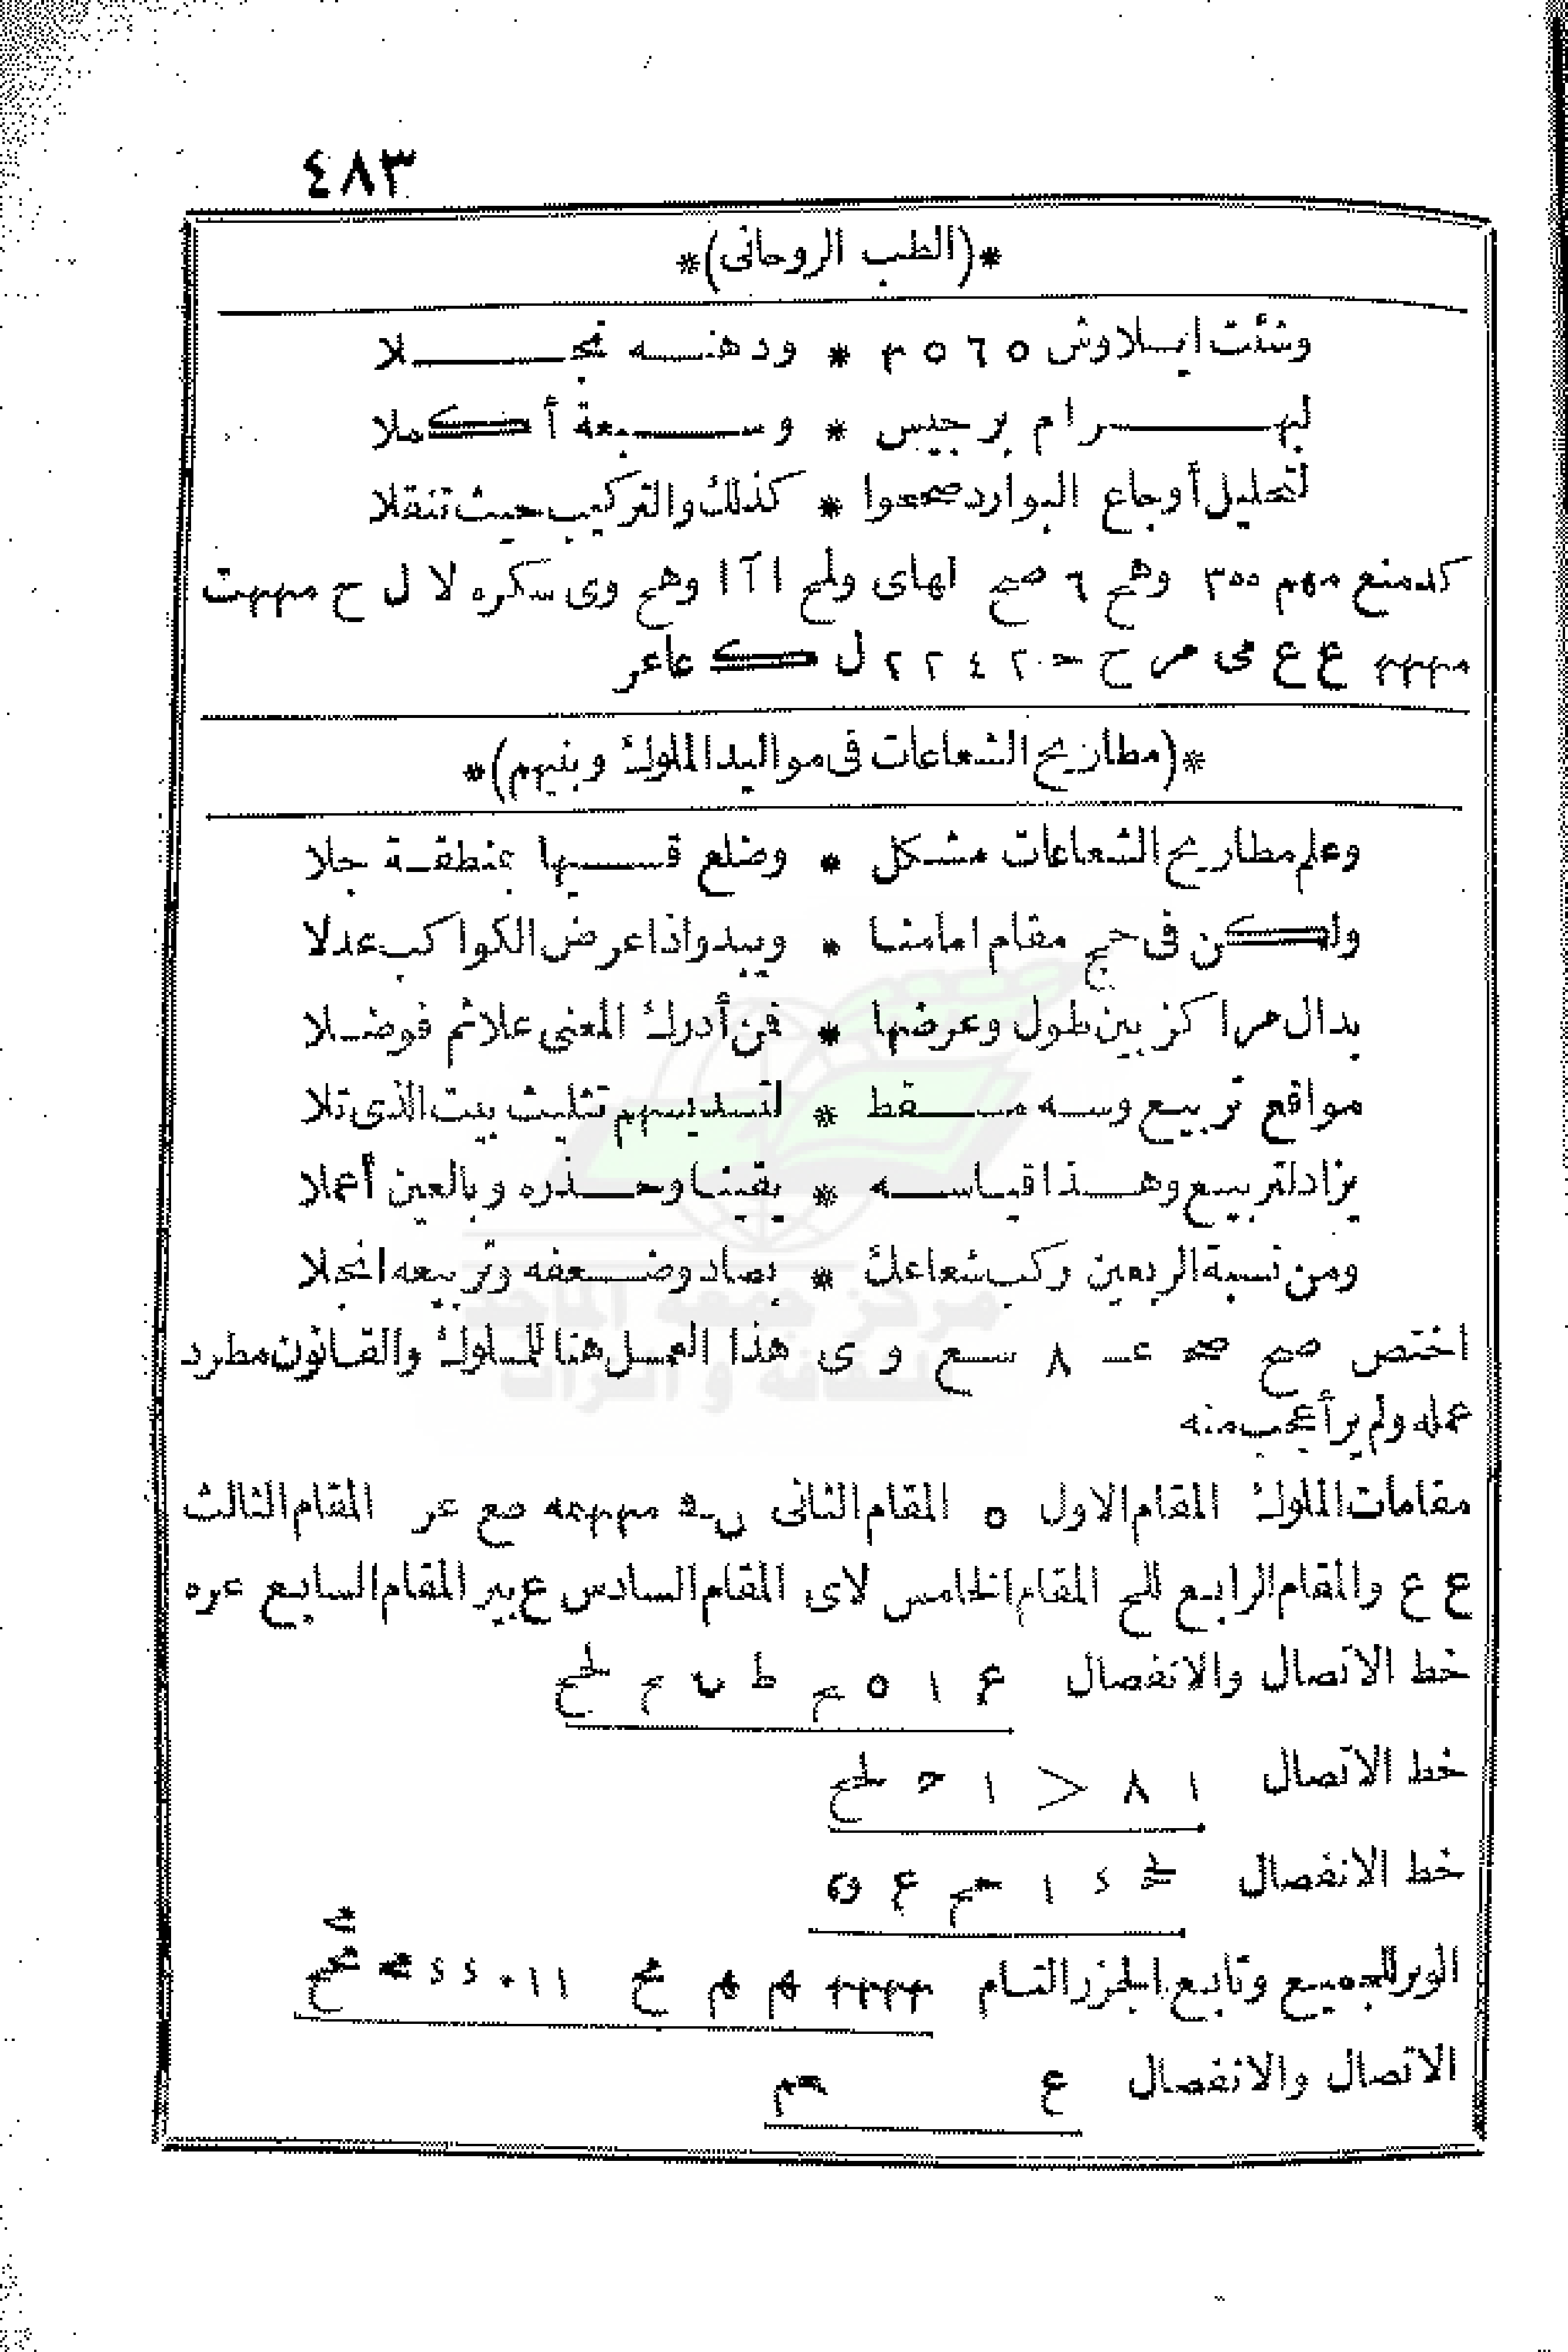 ٤٨٣
*(الطب الروحانى)*
وشئت ايلاوش ٥ ٦ ٥ * ودهنه بحلا
لبهرام برجيس * وسبعة أكملا
لتحليل أوجاع البوارد صححوا * كذلك والتركيب حيث تنقلا
كد منع مهم ٣٥٥ وهح ٦ صح لهاى ولمح ا آ ا وهح وى سكره لا ل ح
ع ع مى مر ح ٢ ٤ ٢ ٢ ل ك عاعر
*(مطاريح الشعاعات فى مواليد الملوك وبنيهم)*
وعلم مطاريح الشعاعات مشكل * وضلع قسيها بمنطقة جلا
ولكن فى حج مقام امامنا * ويبدو اذا عرض الكواكب عدلا
بدال مراكز بين طول وعرضها * فمن أدرك المعنى علا ثم فوضلا
مواقع تربيع وسه مسقط * لتسديسهم تثليث بيت الذى تلا
يزاد لتربيع وهذا قياسه * يقينا وحذره وبالعين أعملا
ومن نسبة الربعين ركب شعاعك * بصاد وضعفه وتربيعه انجلا
اختص صح صح عـ ٨ سع و ى هذا العمل هنا للملوك والقانون مطرد
عمله ولم ير أعجب منه
مقامات الملوك المقام الاول ٥ المقام الثانى صع عر المقام الثالث
ع ع والمقام الرابع للح المقام الخامس لاى المقام السادس ع بير المقام السابع عره
خط الاتصال والانفصال ع ا ٥ ط
خط الاتصال ا ٨ > ا
خط الانفصال
الوتر للجميع وتابع الجزر التام
الاتصال والانفصال ع